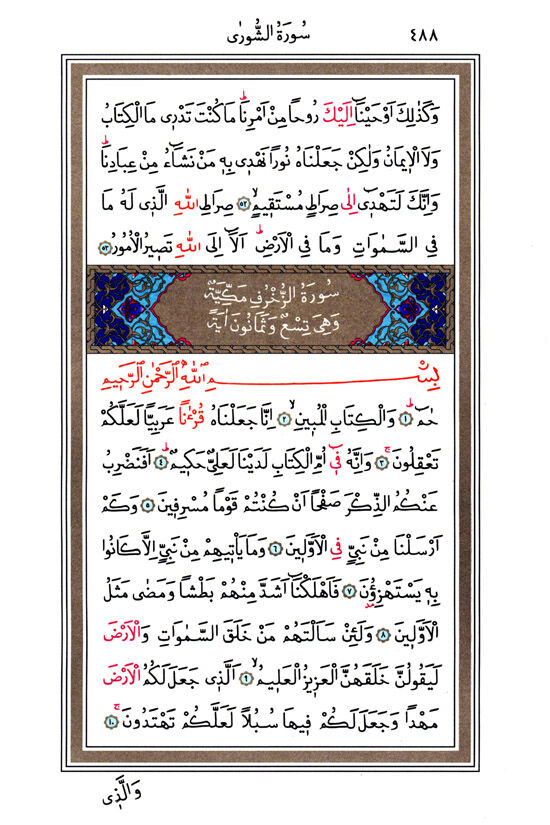 سُورَةُ الشُّورٰى ٤٨٨
وَكَذٰلِكَ اَوْحَيْنَٓا اِلَيْكَ رُوحًا مِنْ اَمْرِنَاۜ مَا كُنْتَ تَدْرٖى مَا الْكِتَابُ
وَلَا الْاٖيمَانُ وَلٰكِنْ جَعَلْنَاهُ نُورًا نَهْدٖى بِهٖ مَنْ نَشَٓاءُ مِنْ عِبَادِنَاۜ
وَاِنَّكَ لَتَهْدٖٓى اِلٰى صِرَاطٍ مُسْتَقٖيمٍۙ ٥٢ صِرَاطِ اللّٰهِ الَّذٖى لَهُ مَا
فِى السَّمٰوَاتِ وَمَا فِى الْاَرْضِۜ اَلَٓا اِلَى اللّٰهِ تَصٖيرُ الْاُمُورُ ٥٣
سُورَةُ الزُّخْرُفِ مَكِّيَّةٌ
وَهِىَ تِسْعٌ وَثَمَانُونَ اٰيَةً
بِسْمِ اللّٰهِ الرَّحْمٰنِ الرَّحٖيمِ
حٰمٓۜ ١ وَالْكِتَابِ الْمُبٖينِۙ ٢ اِنَّا جَعَلْنَاهُ قُرْءٰنًا عَرَبِيًّا لَعَلَّكُمْ
تَعْقِلُونَۚ ٣ وَاِنَّهُ فٖٓى اُمِّ الْكِتَابِ لَدَيْنَا لَعَلِىٌّ حَكٖيمٌۜ ٤ اَفَنَضْرِبُ
عَنْكُمُ الذِّكْرَ صَفْحًا اَنْ كُنْتُمْ قَوْمًا مُسْرِفٖينَ ٥ وَكَمْ
اَرْسَلْنَا مِنْ نَبِىٍّ فِى الْاَوَّلٖينَ ٦ وَمَا يَاْتٖيهِمْ مِنْ نَبِىٍّ اِلَّا كَانُوا
بِهٖ يَسْتَهْزِؤُ۫نَ ٧ فَاَهْلَكْنَٓا اَشَدَّ مِنْهُمْ بَطْشًا وَمَضٰى مَثَلُ
الْاَوَّلٖينَ ٨ وَلَئِنْ سَاَلْتَهُمْ مَنْ خَلَقَ السَّمٰوَاتِ وَالْاَرْضَ
لَيَقُولُنَّ خَلَقَهُنَّ الْعَزٖيزُ الْعَلٖيمُۙ ٩ اَلَّذٖى جَعَلَ لَكُمُ الْاَرْضَ
مَهْدًا وَجَعَلَ لَكُمْ فٖيهَا سُبُلًا لَعَلَّكُمْ تَهْتَدُونَۚ ١٠
وَالَّذٖى